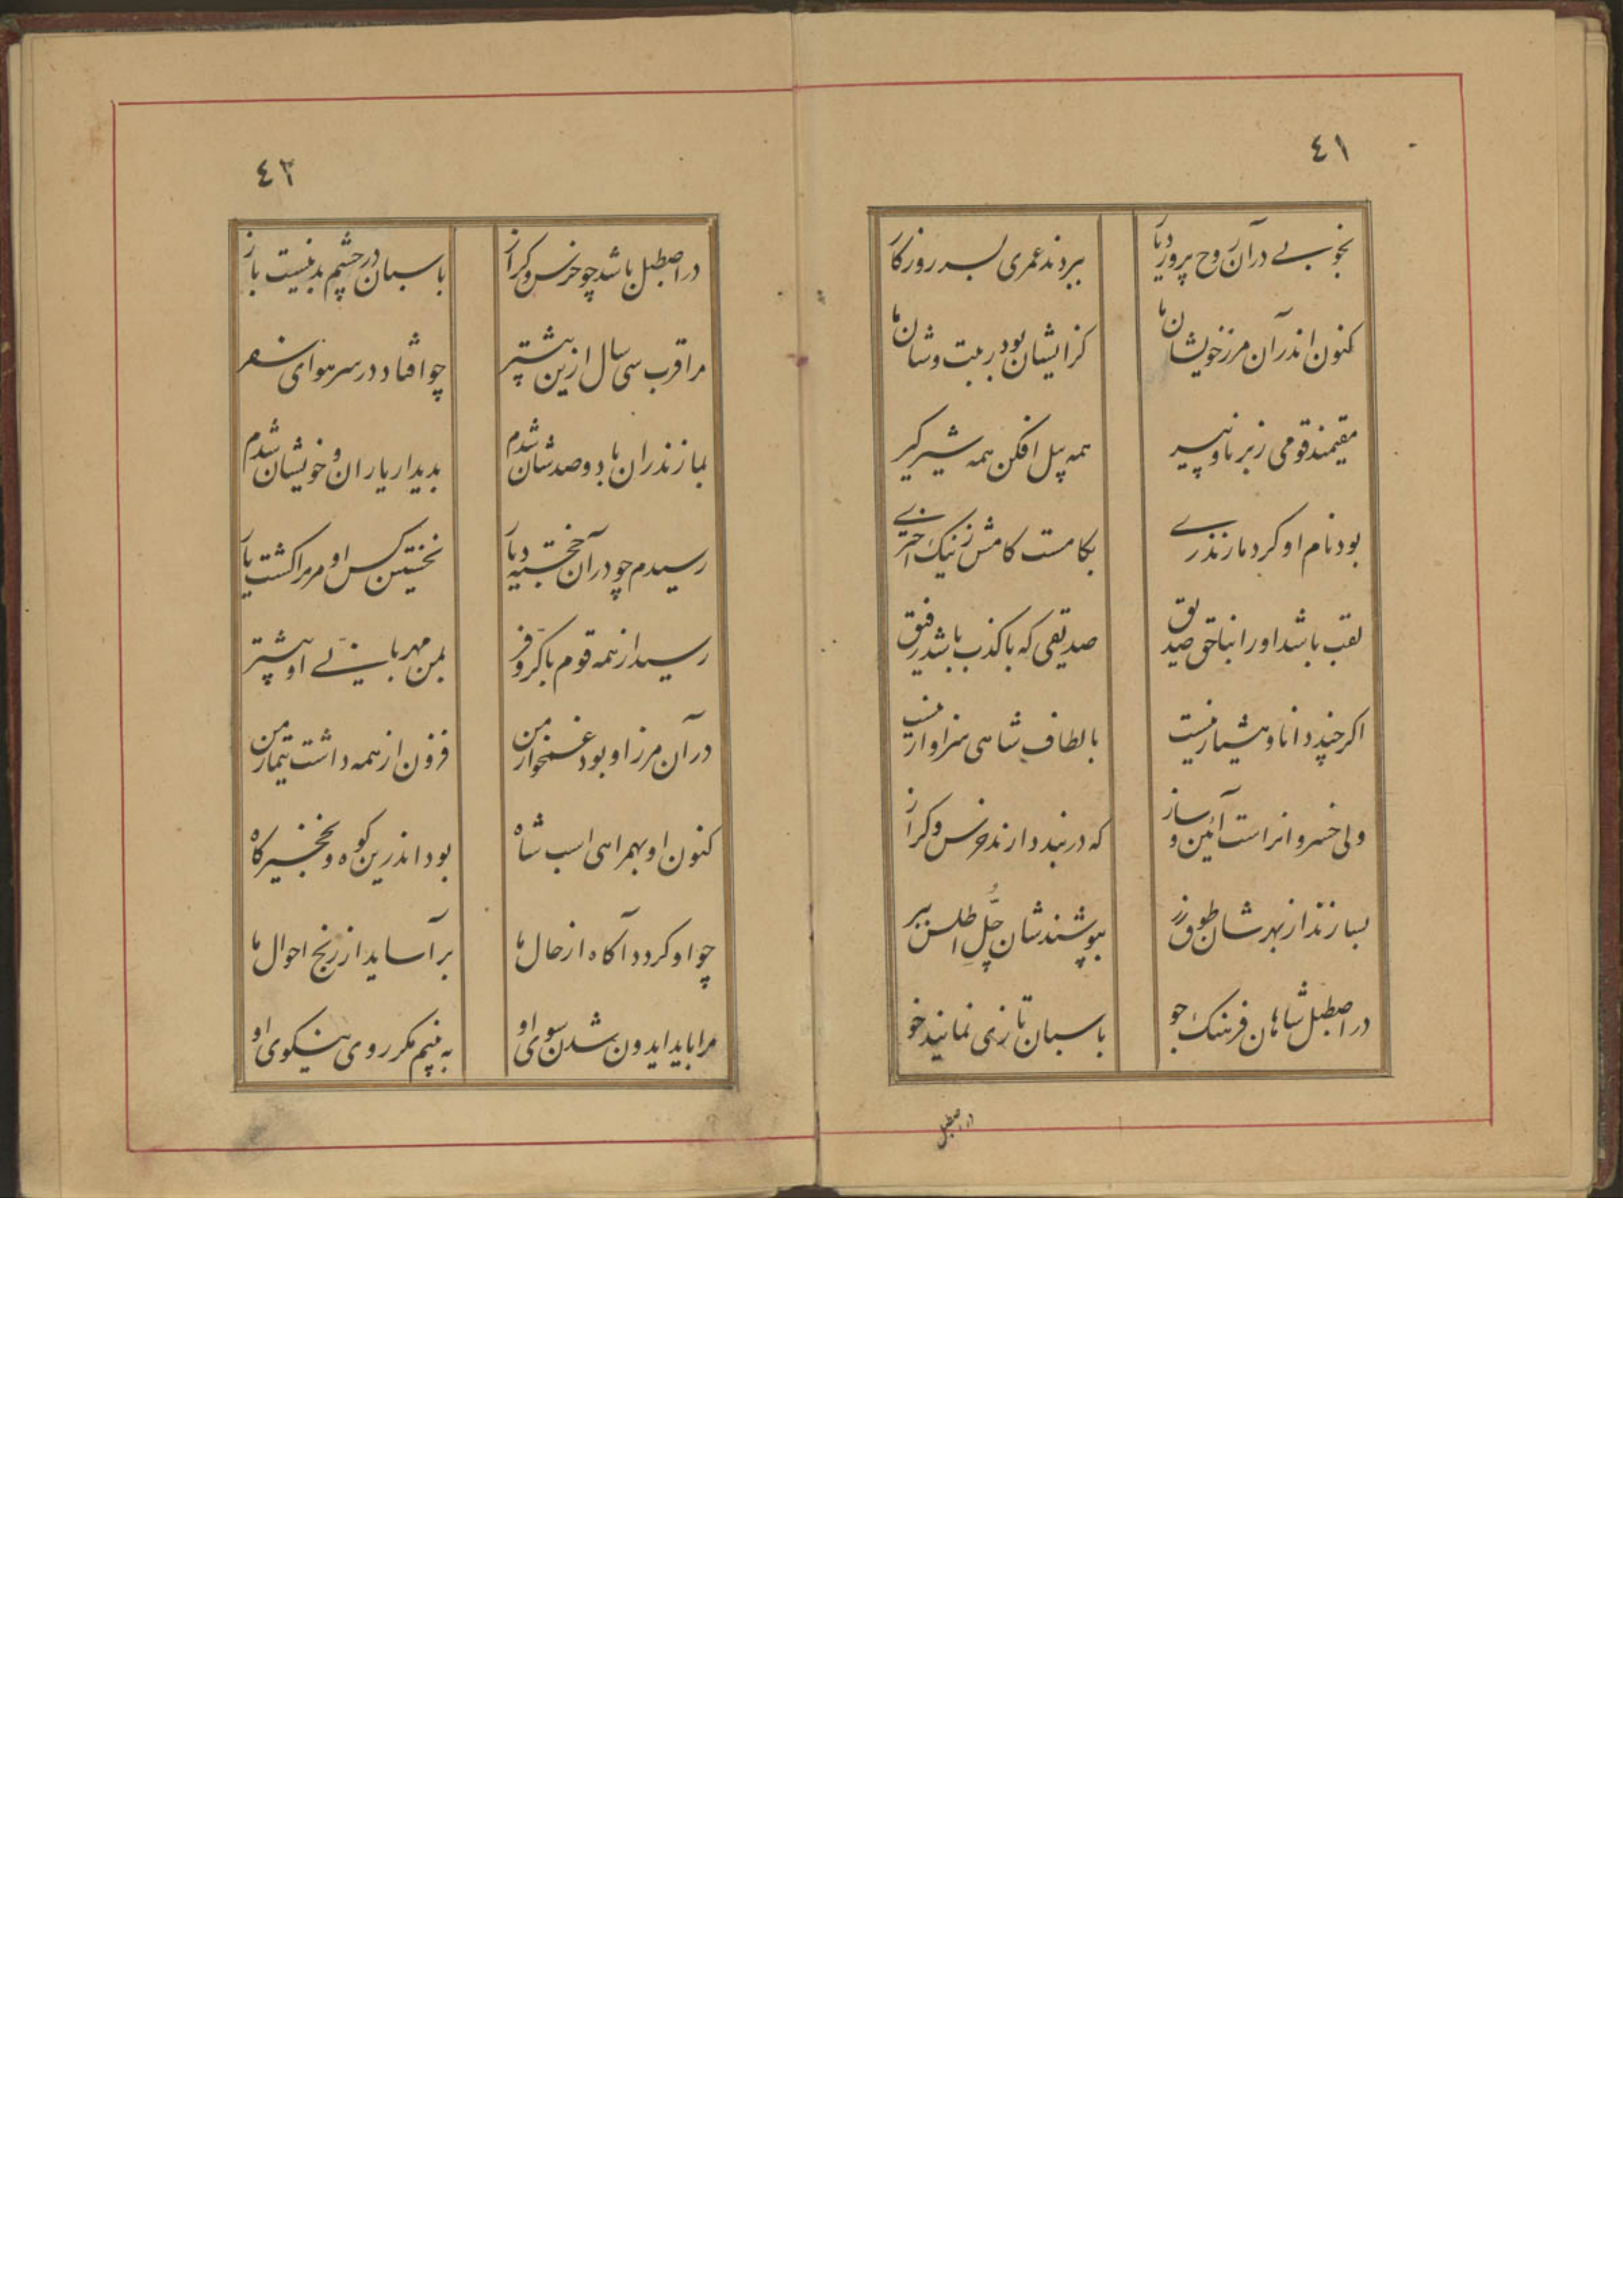 ٤١
بخوبی درآن روح پرور دیار ببردند عمری بسر روزکار
کنون اندرآن مرز خویشان ما کزایشان بود رتبت وشان ما
مقیمند قومی زبرنا وپیر همه پیل افکن همه شیرکیر
بود نام او کرد مازندری بکامست کامش زنیک اختری
لقب باشد اورا بناحق صدیق صدیقی که باکذب باشد رفیق
اکرچند دانا وهشیار نیست بالطاف شاهی سزاوار نیست
ولی خسروانراست آئین وساز که دربند دارند خرس وکراز
بسازند از بهرشان طوق زر بپوشندشان جُلِّ اطلس ببر
دراصطبل شاهان فرهنک جو باسبان تازی نمایند خو
دراصطبل
٤٢
دراصطبل باشد چو خرس وکراز باسبان درچشم بد نیست باز
مرا قرب سی سال ازین پیشتر چو افتاد در سر هوای سفر
بمازندران با دوصد شان شدم بدیدار یاران وخویشان شدم
رسیدم چو درآن خجسته دیار نخستین کس او مرمرا کشت یار
رسید از همه قوم باکرّوفر بمن مهربانی او بیشتر
درآن مرز او بود غمخوار من فزون از همه داشت تیمار من
کنون او بهمراهی اسب شاه بود اندرین کوه ونخجیرکاه
چو او کردد آکاه ازحال ما برآساید از رنج احوال ما
مرا باید ایدون شدن سوی او به بینم مکر روی نیکوی او